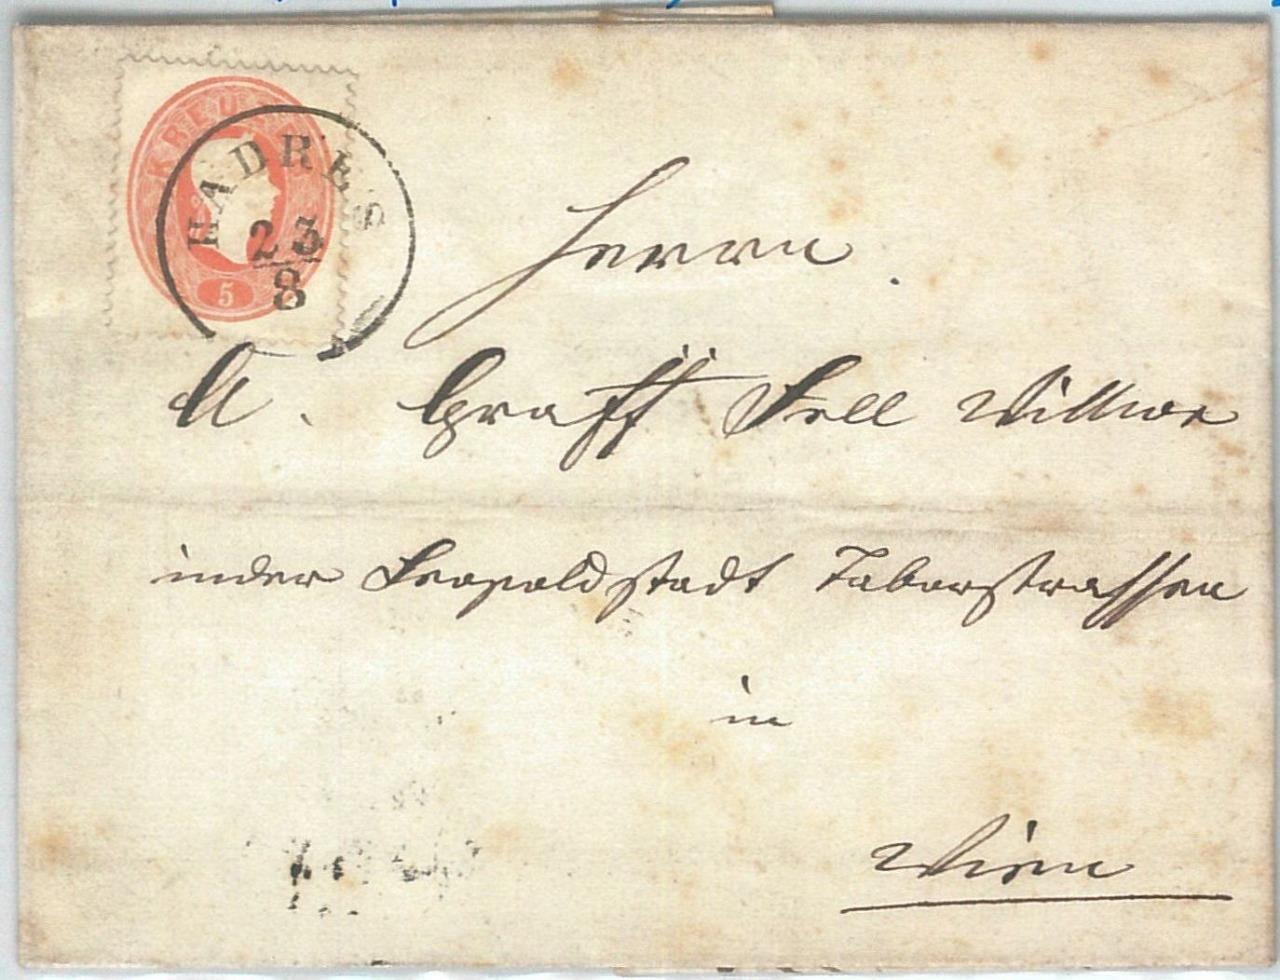 KREUZER
5
HADRES
23
8
Herrn
A. Graff Sell Wittwe
in der Leopoldstadt Taborstrassen
in
Wien